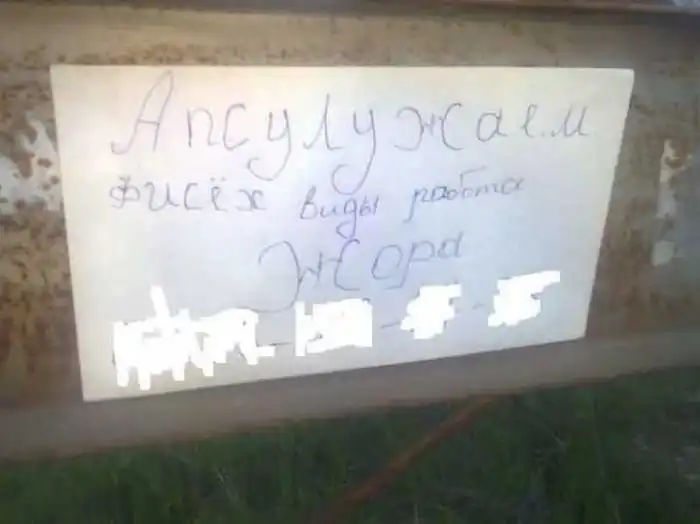 Апсулужаем
Фисёх виды работа
Жора